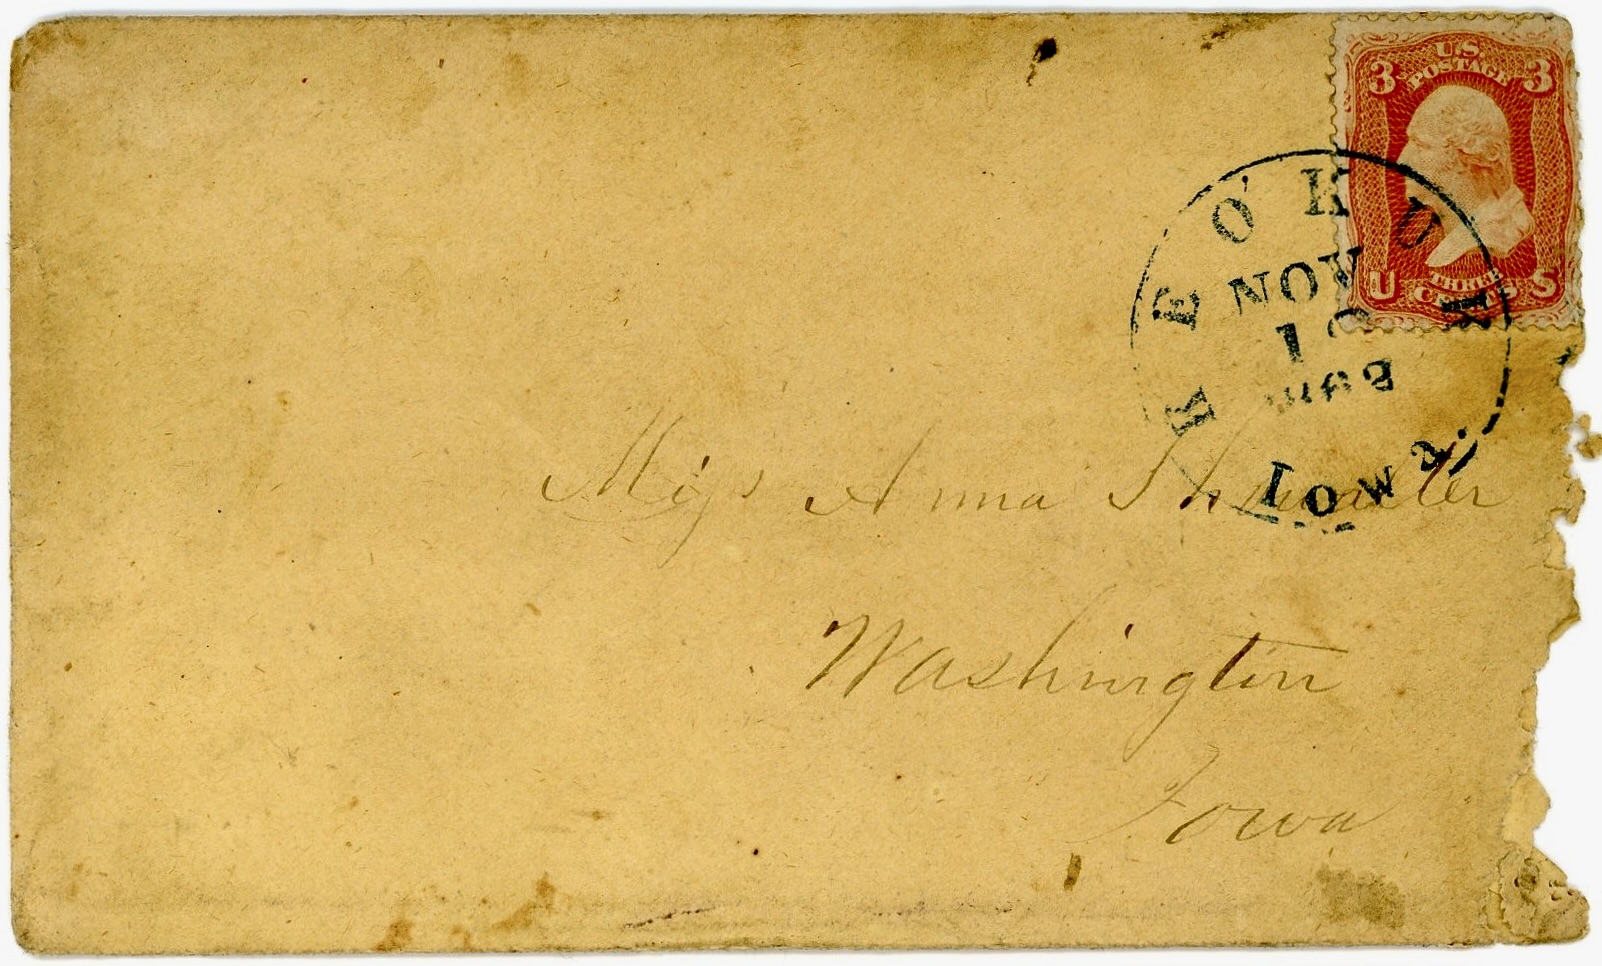 U.S.
POSTAGE
3 3
U S
THREE
CENTS
KEOKUK
NOV
Iowa.
Miss Anna
Washington
Iowa